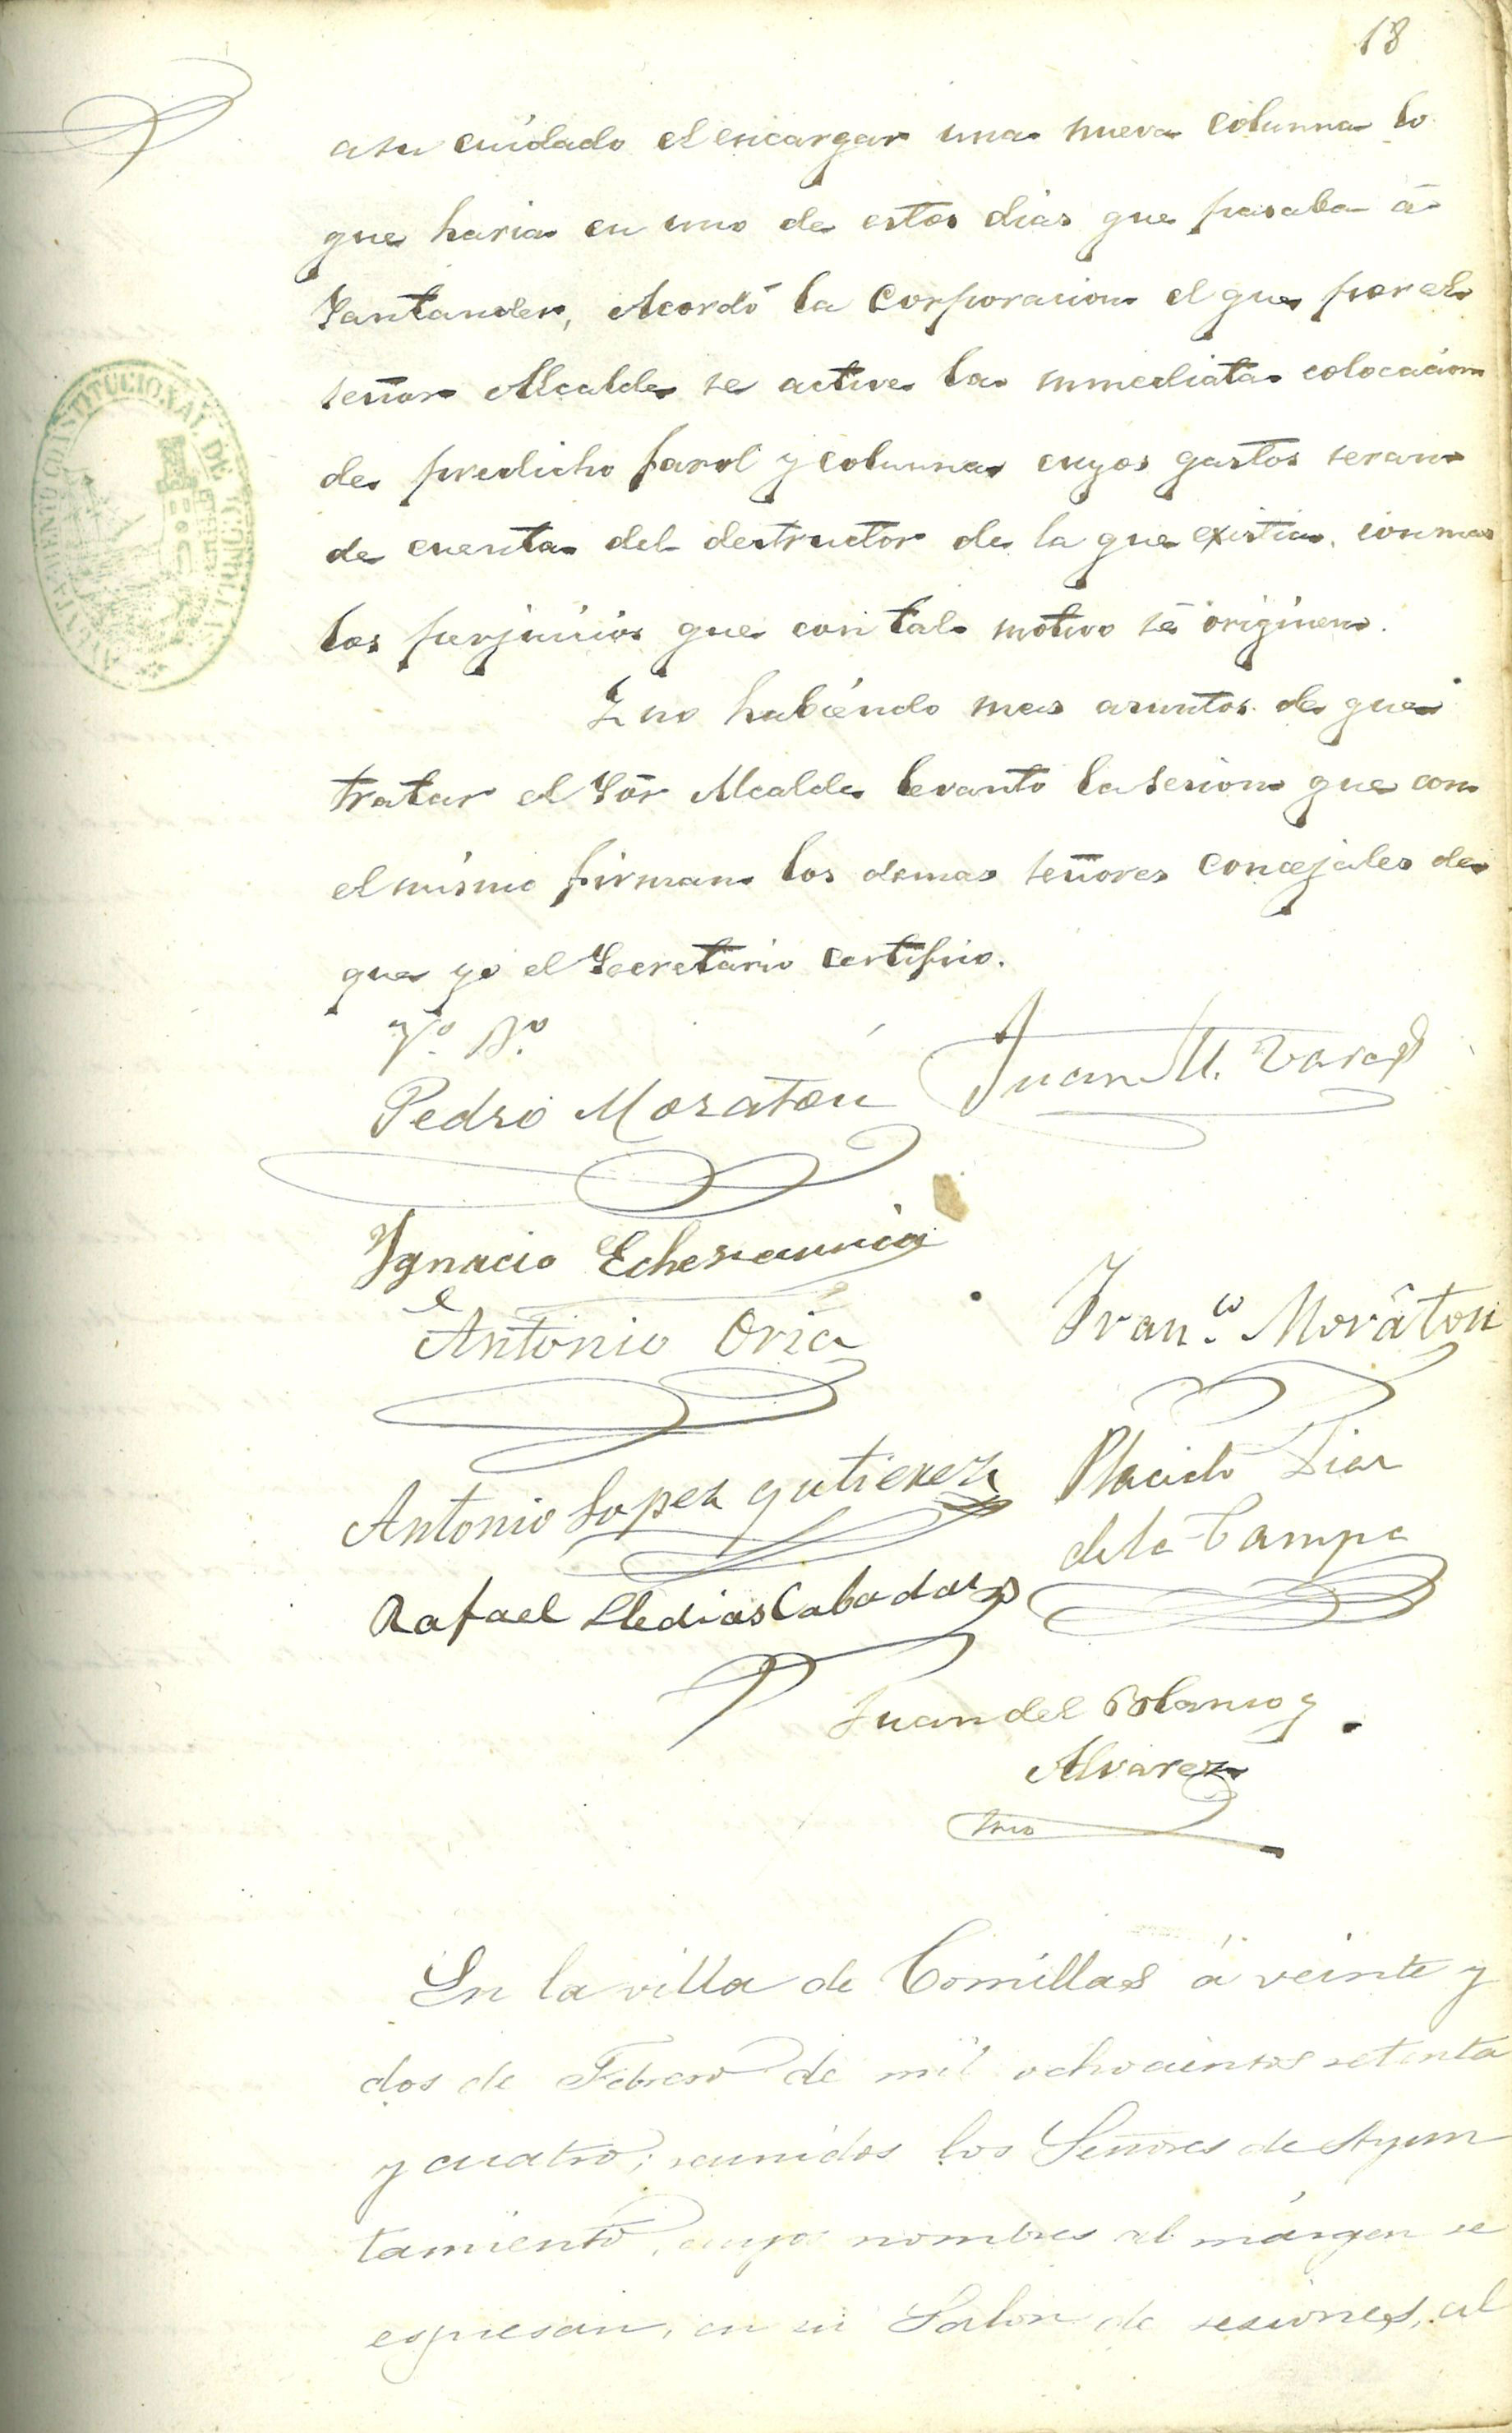 18
asu cuidado el encargar una nueva columna lo
que haria en uno de estos dias que pasaba á
Santander, Acordó la Corporacion el que por el
señor Alcalde se active la inmediata colocacion
de predicho farol y columna cuyos gastos seran
de cuenta del destructor de la que existia, con mas
los perjuicios que con tal motivo se originen.
Y no habiendo mas asuntos de que
tratar el Sor Alcalde levanto la sesion que con
el mismo firman los demas señores concejales de
que yo el Secretario certifico.
Vo. Bo.
Pedro Moraton
Juan M. Vara
Ignacio Echevarria
Antonio Oria
Franco. Moraton
Antonio Lopez gutierez
Placido Diaz
de la Campa
Rafael Lledias Cabadas
Juan del Blanco y
Alvarez
Srio
AYUNTAMIENTO CONSTITUCIONAL DE COMILLAS
En la villa de Comillas á veinte y
dos de Febrero de mil ochocientos setenta
y cuatro; reunidos los Señores de Ayun
tamiento, cuyos nombres al márgen se
espresan, en su Salon de sesiones, al